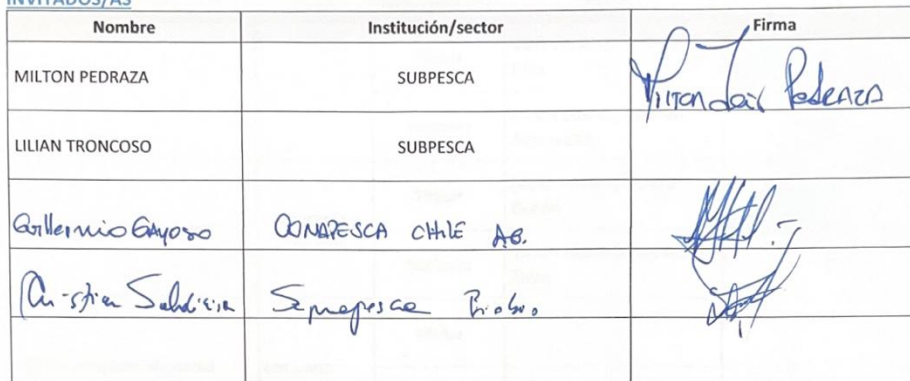 INVITADOS/AS
Nombre Institución/sector Firma
MILTON PEDRAZA SUBPESCA Pedraza
LILIAN TRONCOSO SUBPESCA
Guillermo Gayoso CONAPESCA CHILE AG.
Cristian Sernapesca Biobio